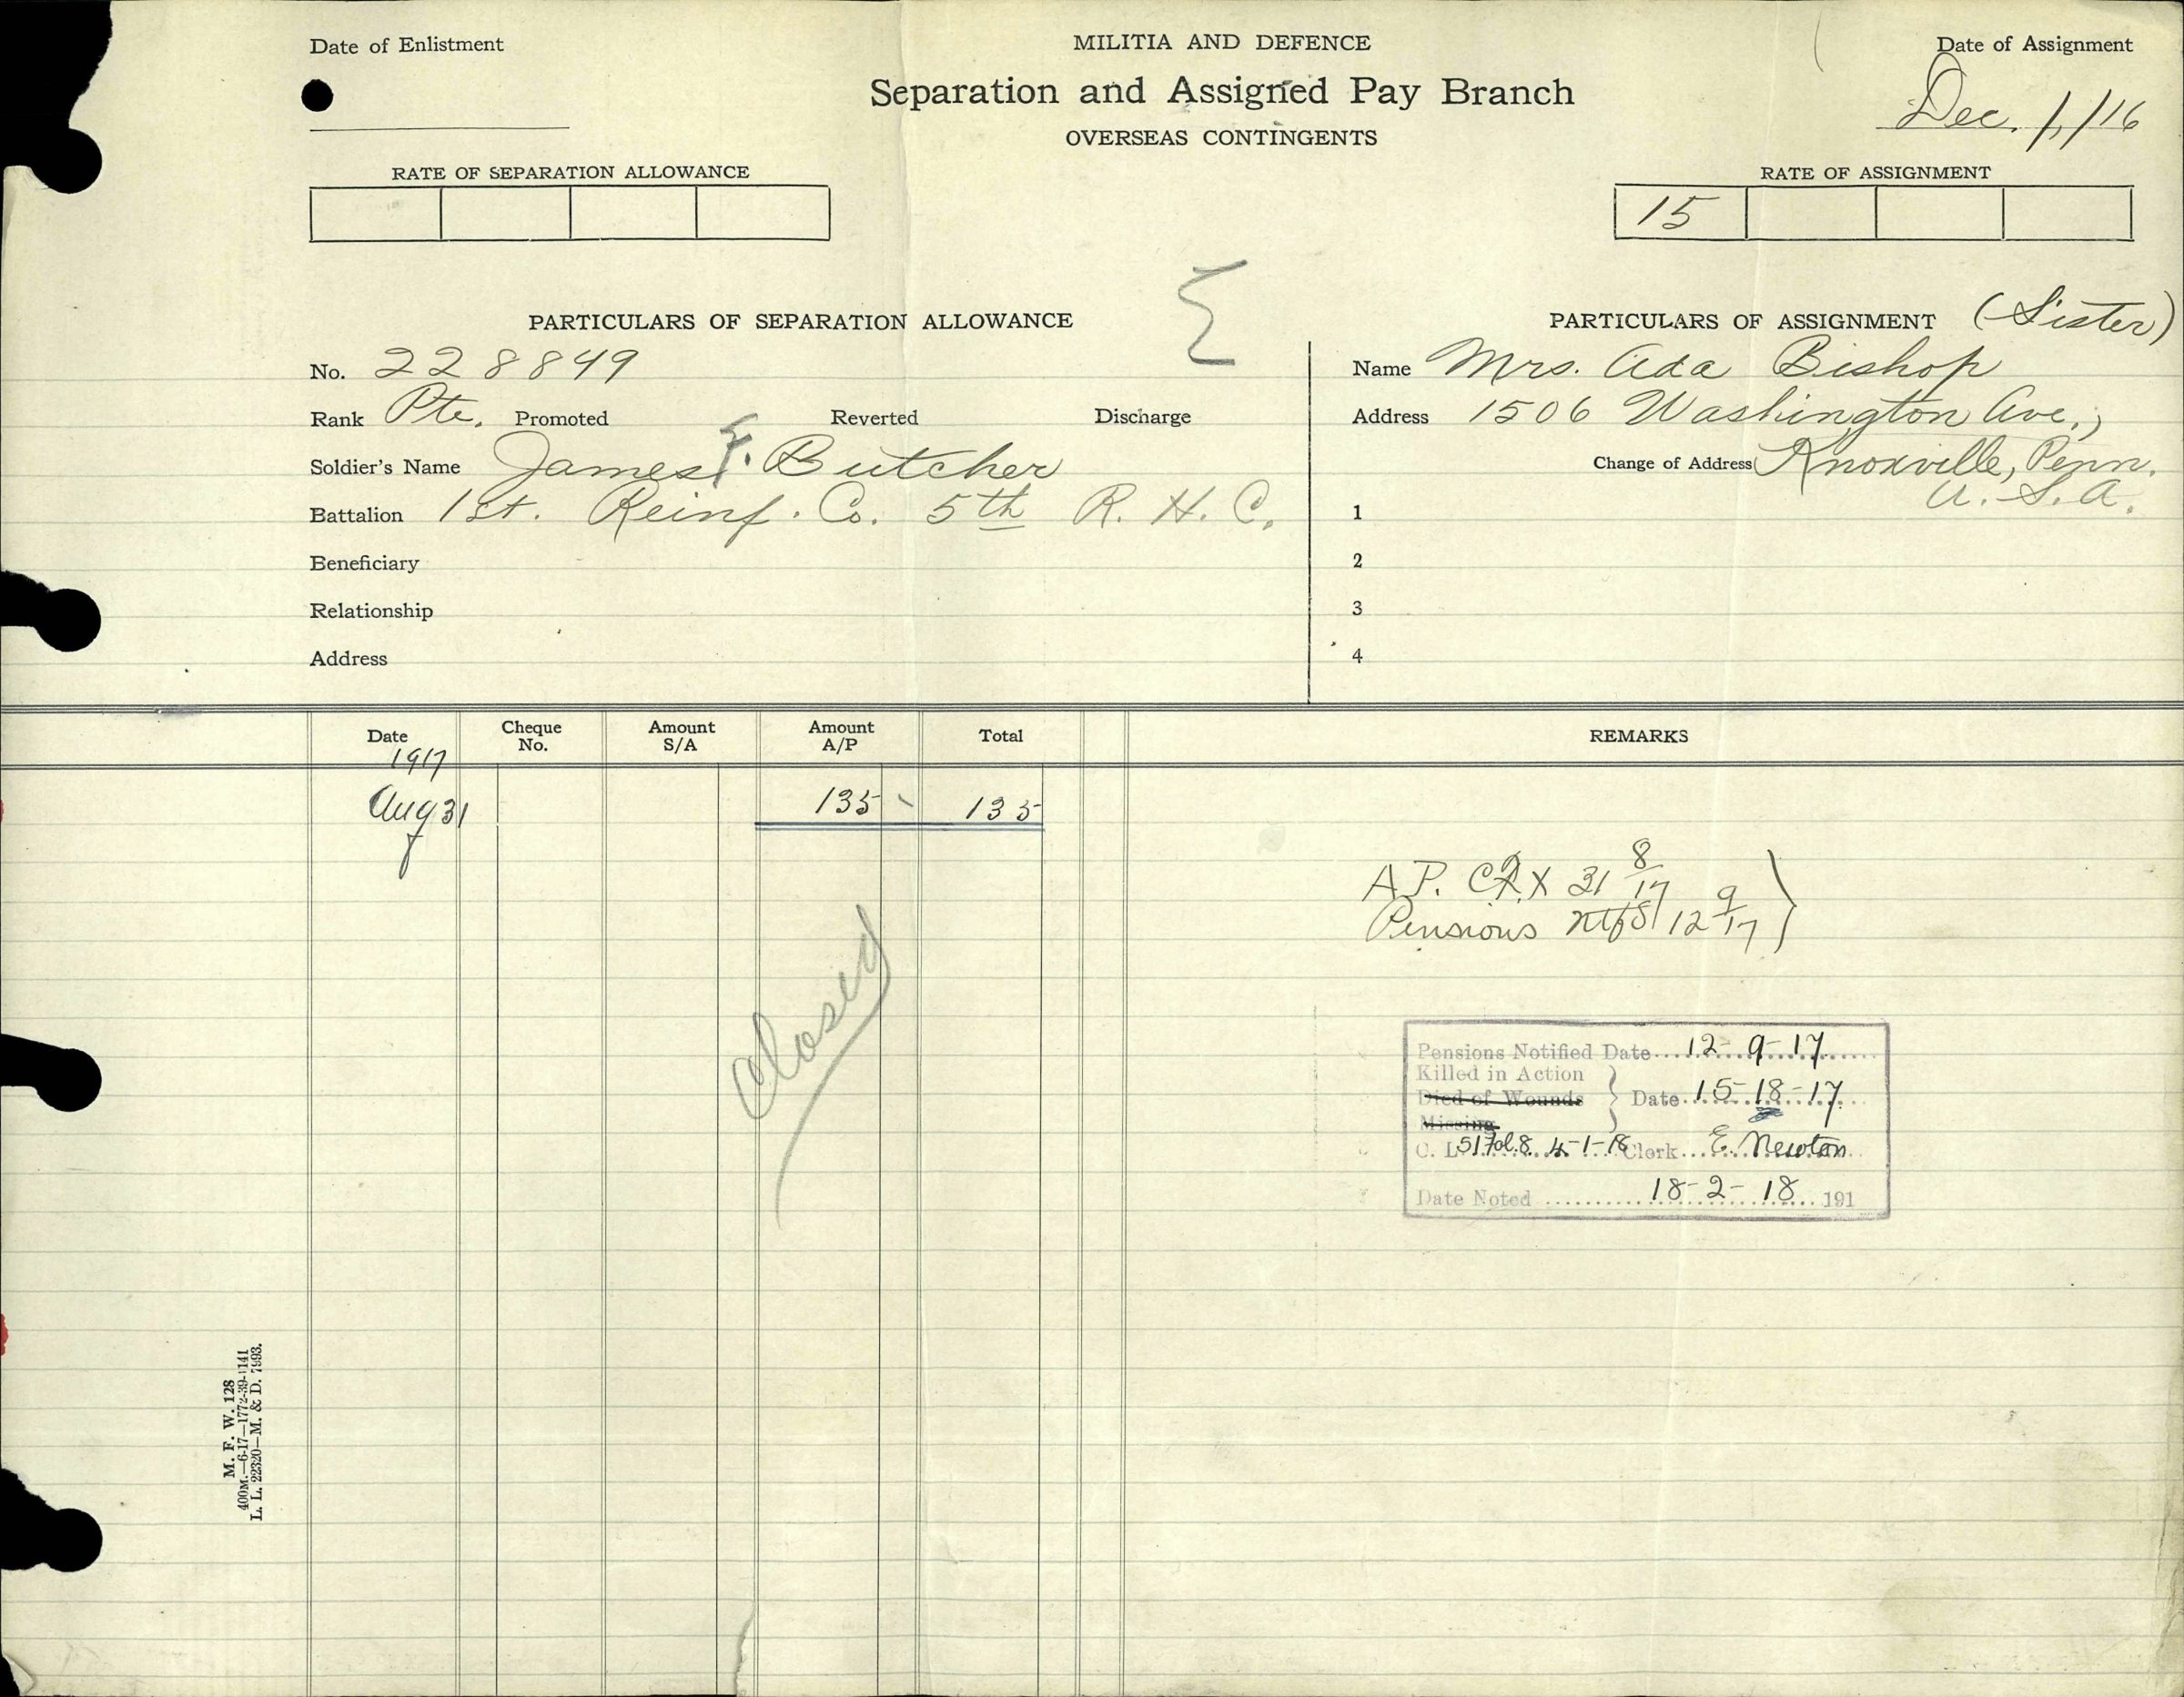 Date of Enlistment
MILITIA AND DEFENCE
Date of Assignment
Separation and Assigned Pay Branch
Dec. 1,/16
OVERSEAS CONTINGENTS
RATE OF SEPARATION ALLOWANCE
RATE OF ASSIGNMENT
15
PARTICULARS OF SEPARATION ALLOWANCE
PARTICULARS OF ASSIGNMENT (Sister)
No. 228849
Name Mrs. Ada Bishop
Rank Pte. Promoted Reverted Discharge
Address 1506 Washington Ave.,
Soldier's Name James F. Butcher
Change of Address Knoxville, Penn.
U.S.A.
Battalion 1st. Reinf. Co. 5th R. H. C.
1
Beneficiary
2
Relationship
3
Address
4
Date Cheque No. Amount S/A Amount A/P Total REMARKS
1917
Aug 31 135 - 135
A.P. 31 8/17
Pensions 12 9/17
Closed
Pensions Notified Date 12-9-17
Killed in Action
Died of Wounds
Date 15-18-17
Missing
C. L. 51 fol. 8. 4-1-18 Clerk E. Newton
Date Noted 18-2-18 191
M. F. W. 128
400M.—6-17—1772-39-1141
L. L. 22320—M. & D. 7993.